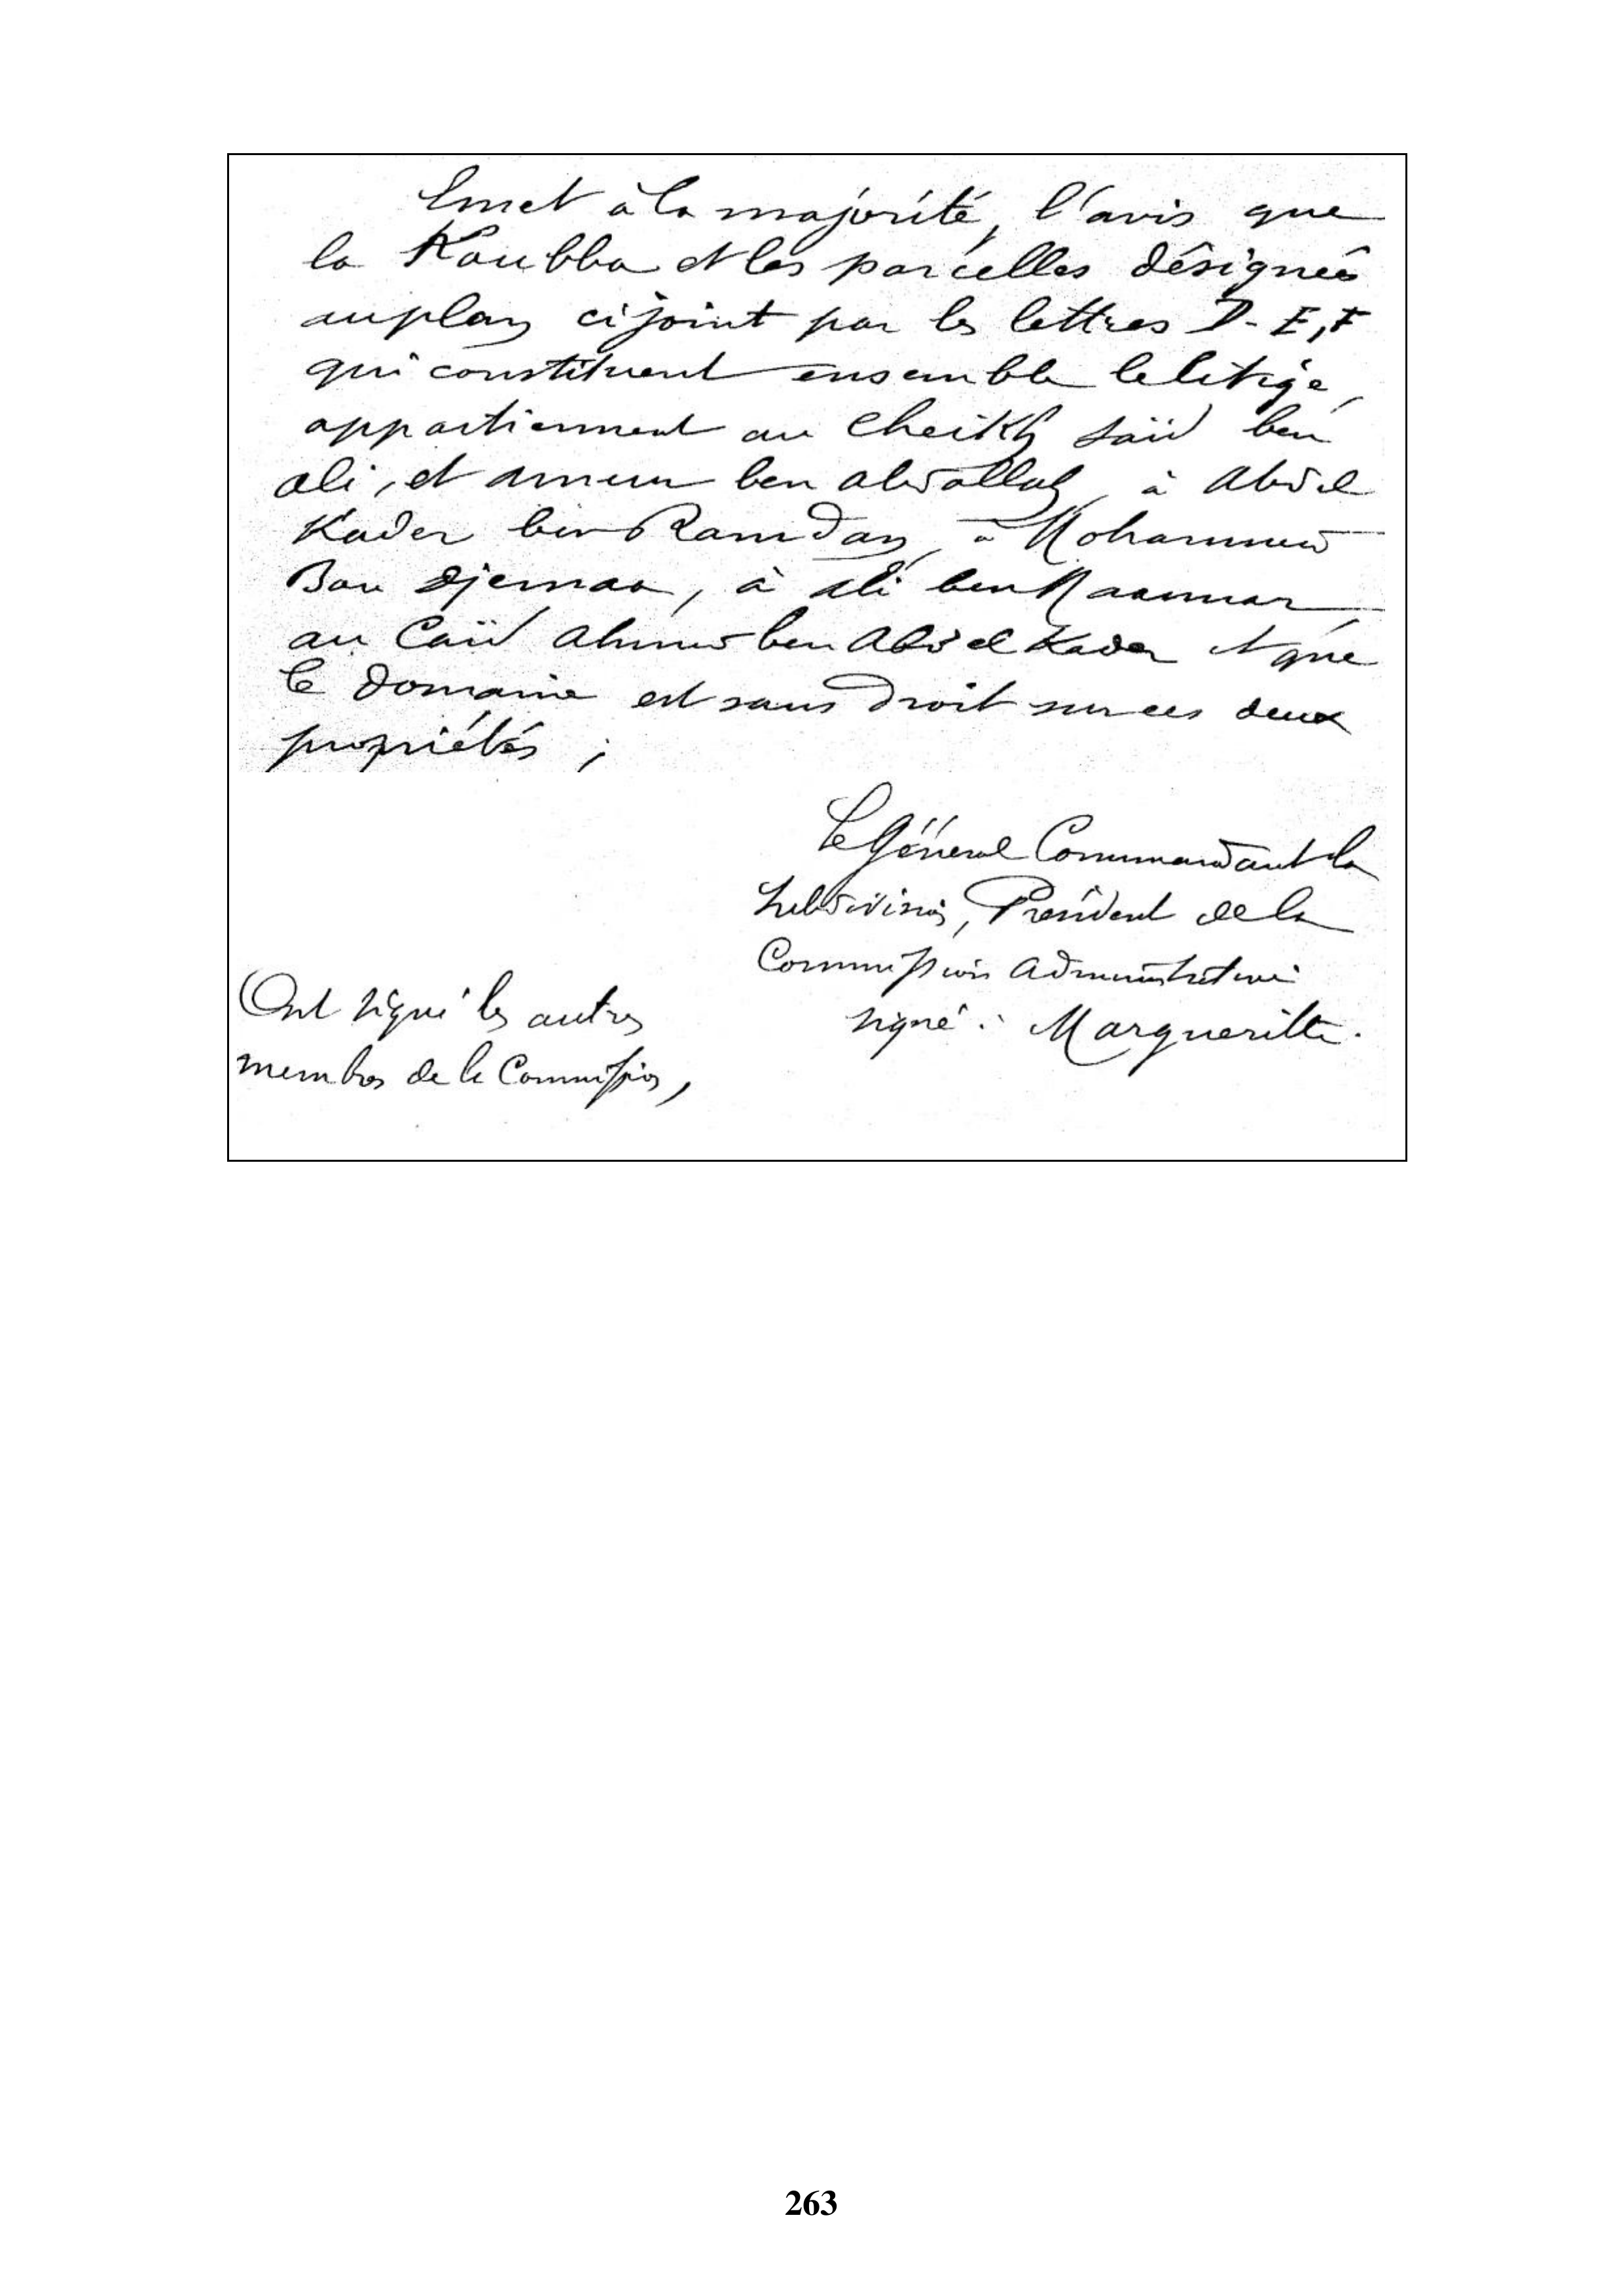 Emet à la majorité, l'avis que
la Koubba et les parcelles désignées
au plan ci joint par les lettres D - E, F
qui constituent ensemble le litige,
appartiennent au Cheikh Saïd ben
ali, et ameur ben abdallah, à Abd el
Kader ben Ramdan, à Mohammed
Bou Djemaa, à Ali ben
au Caïd Ahmed ben Abd el Kader et que
le Domaine est sans droit sur ces deux
propriétés ;
Le Général Commandant la
Subdivision, Président de la
Commission Administrative
signé : Margueritte.
Ont signé les autres
membres de la Commission,
263